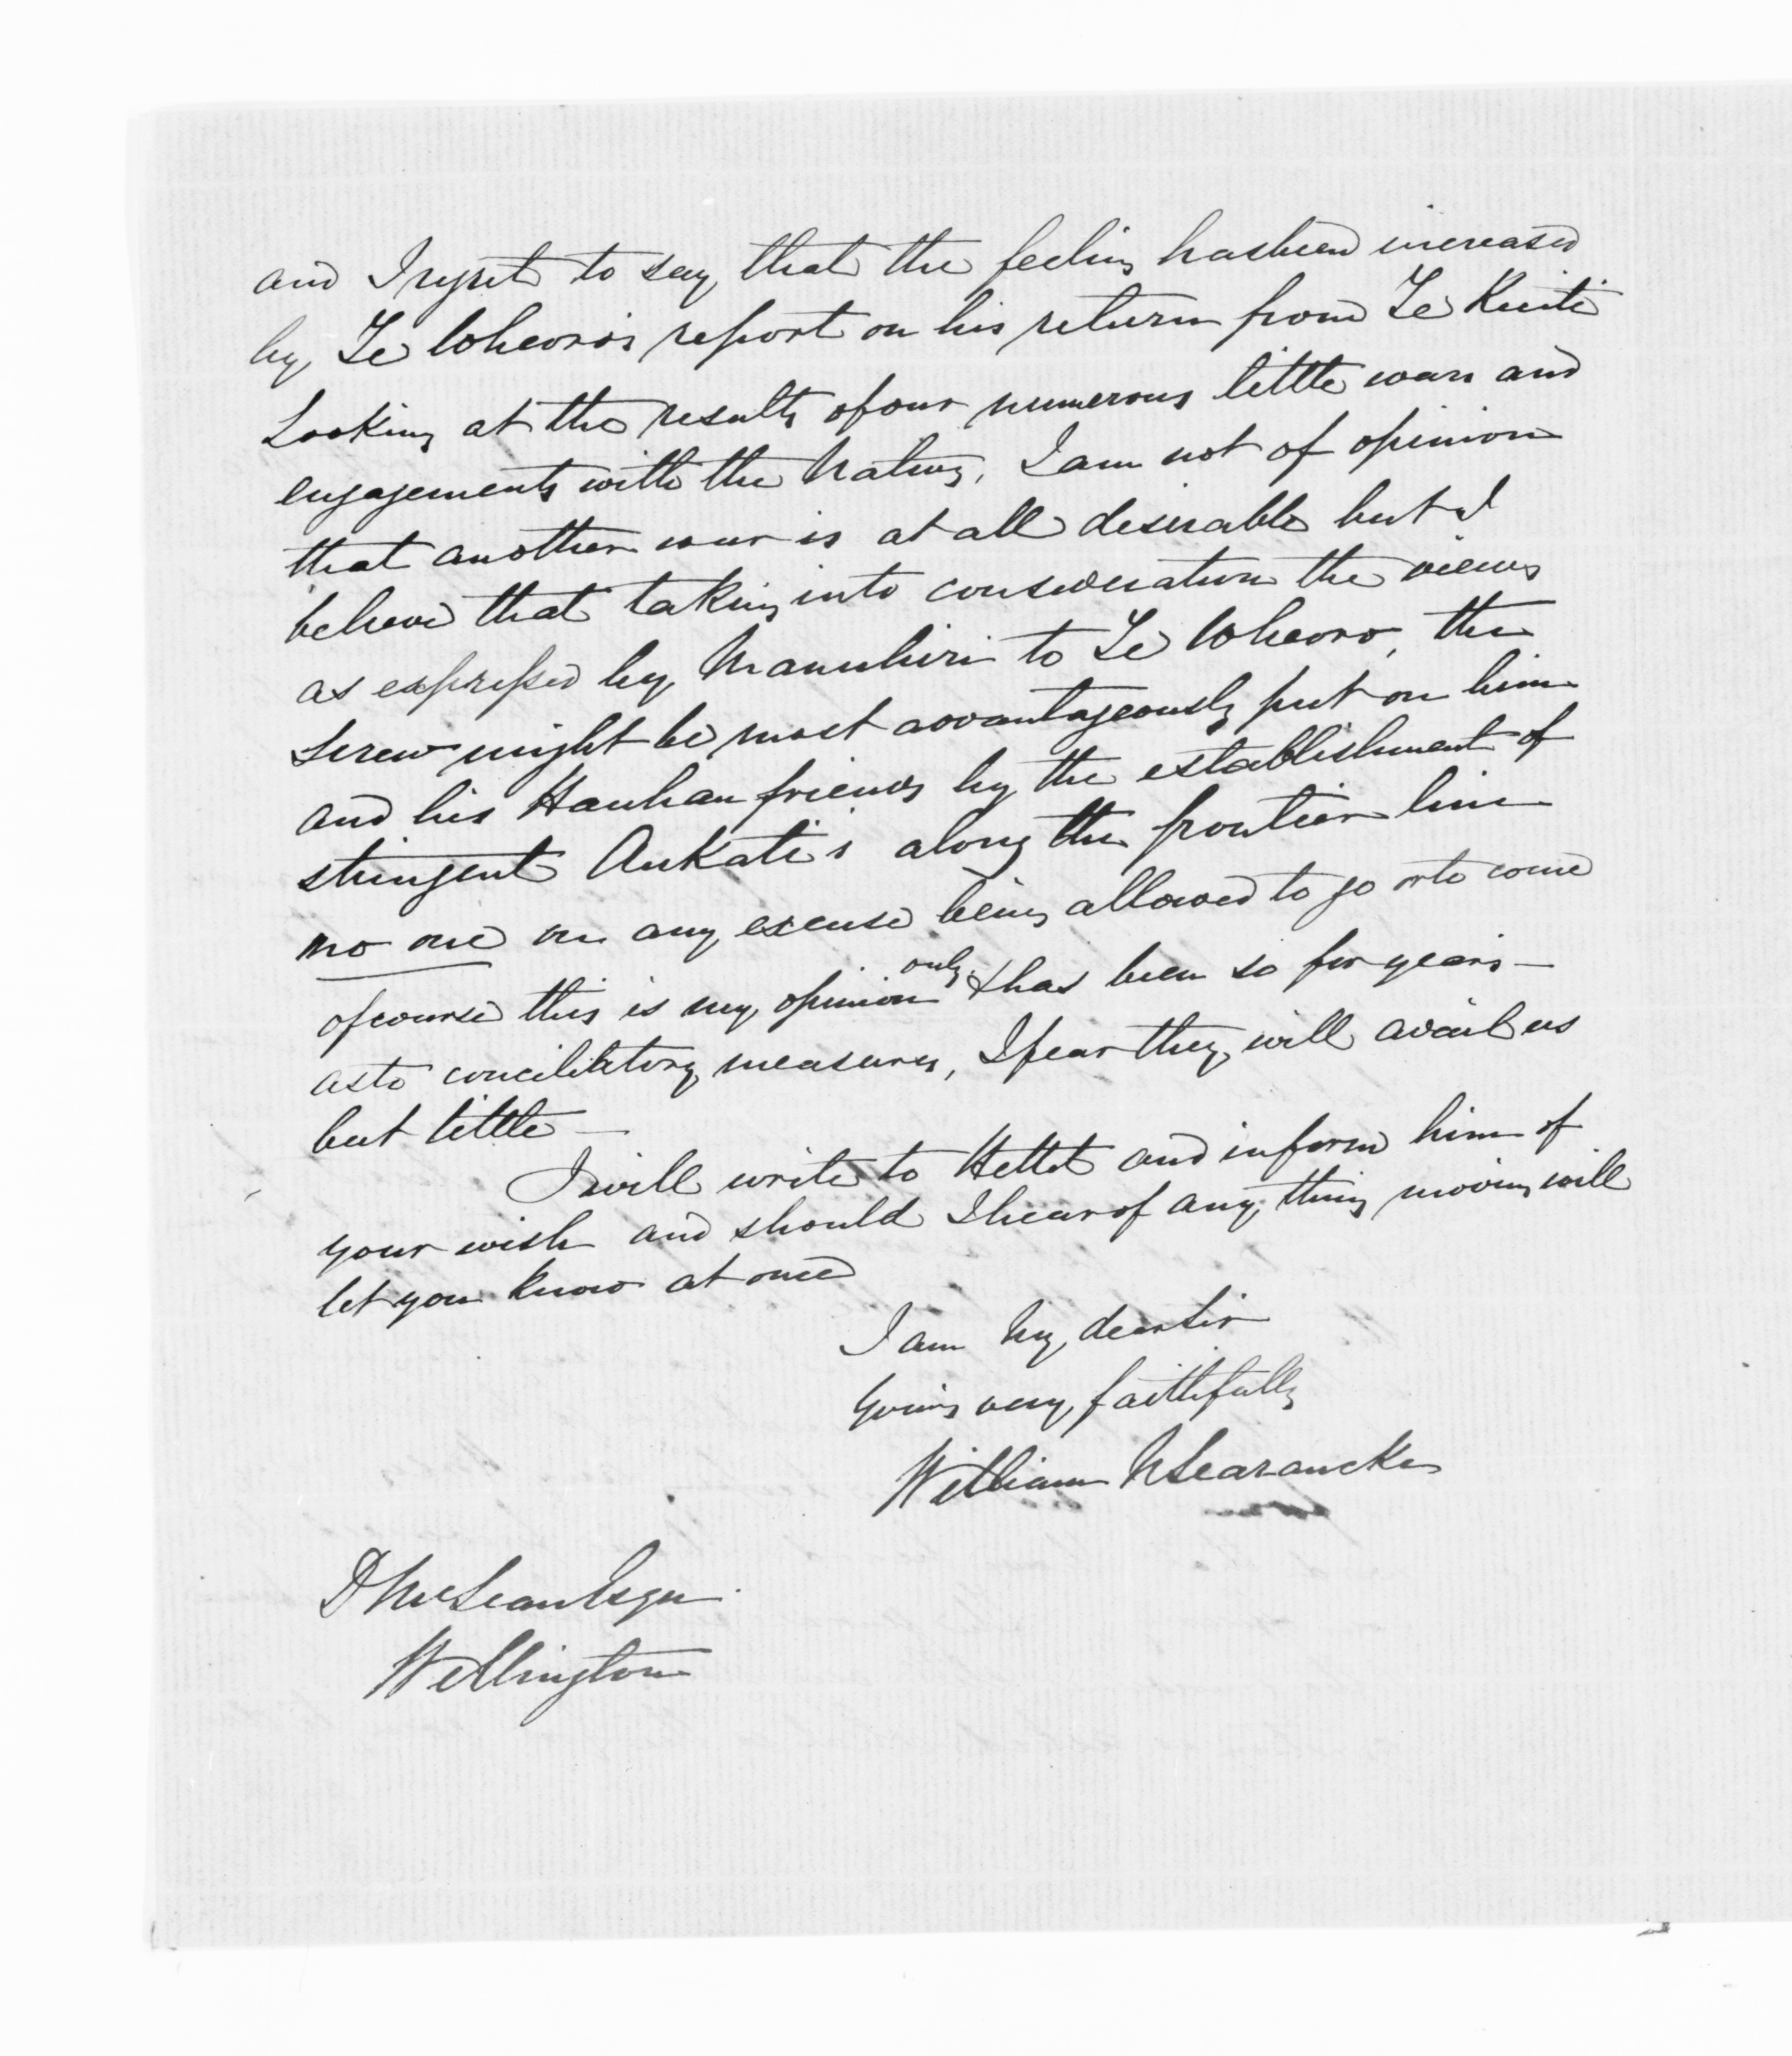 and I regret to say that the feeling has been increased
by Te Wheoro's report on his return from Te Kuiti
Looking at the results of our numerous little wars and
engagements with the Natives, I am not of opinion
that another war is at all desirable but I
believe that taking into consideration the views
as expressed by Manuhiri to Te Wheoro, the
screw might be most advantageously put on him
and his Hauhau friends by the establishment of
stringent Aukati's along the frontier line
no one on any excuse being allowed to go or to come
of course this is my opinion only & has been so for years —
as to concilitatory measures, I fear they will avail us
but little —
I will write to Hettit and inform him of
your wish and should I hear of any thing moving will
let you know at once
I am My dear Sir
Yours very faithfully
William N Searancke
D McLean Esqre
Wellington